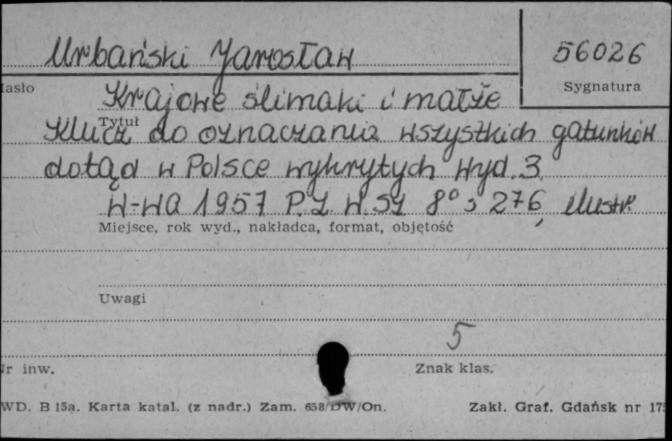 Urbański Jarosław
56026
Sygnatura
Krajowe ślimaki i małże
Tytuł
Klucz do oznaczania wszystkich gatunków
dotąd w Polsce wykrytych Wyd. 3
W-wa 1957 P.Z.W.SZ 8° s 276, ilustr.
Miejsce, rok wyd., nakładca, format, objętość
Uwagi
5
inw.
Znak klas.
WD. B 15a. Karta katal. (z nadr.) Zam. 658/DW/On.
Zakł. Graf. Gdańsk nr